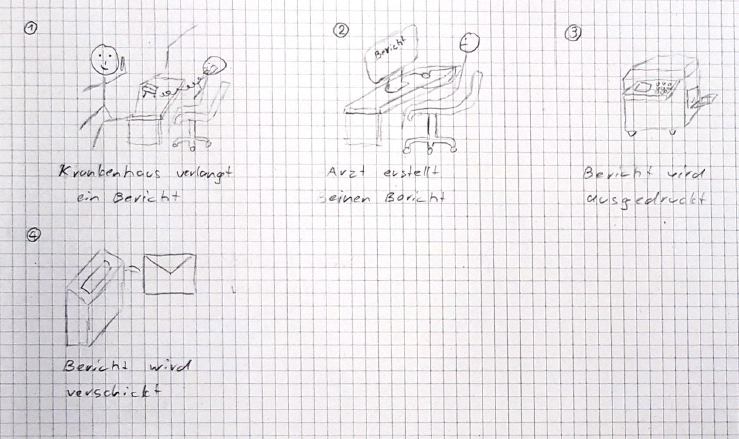 1
Krankenhaus verlangt
ein Bericht
2
Bericht
Arzt erstellt
seinen Bericht
3
Bericht wird
ausgedruckt
4
Bericht wird
verschickt